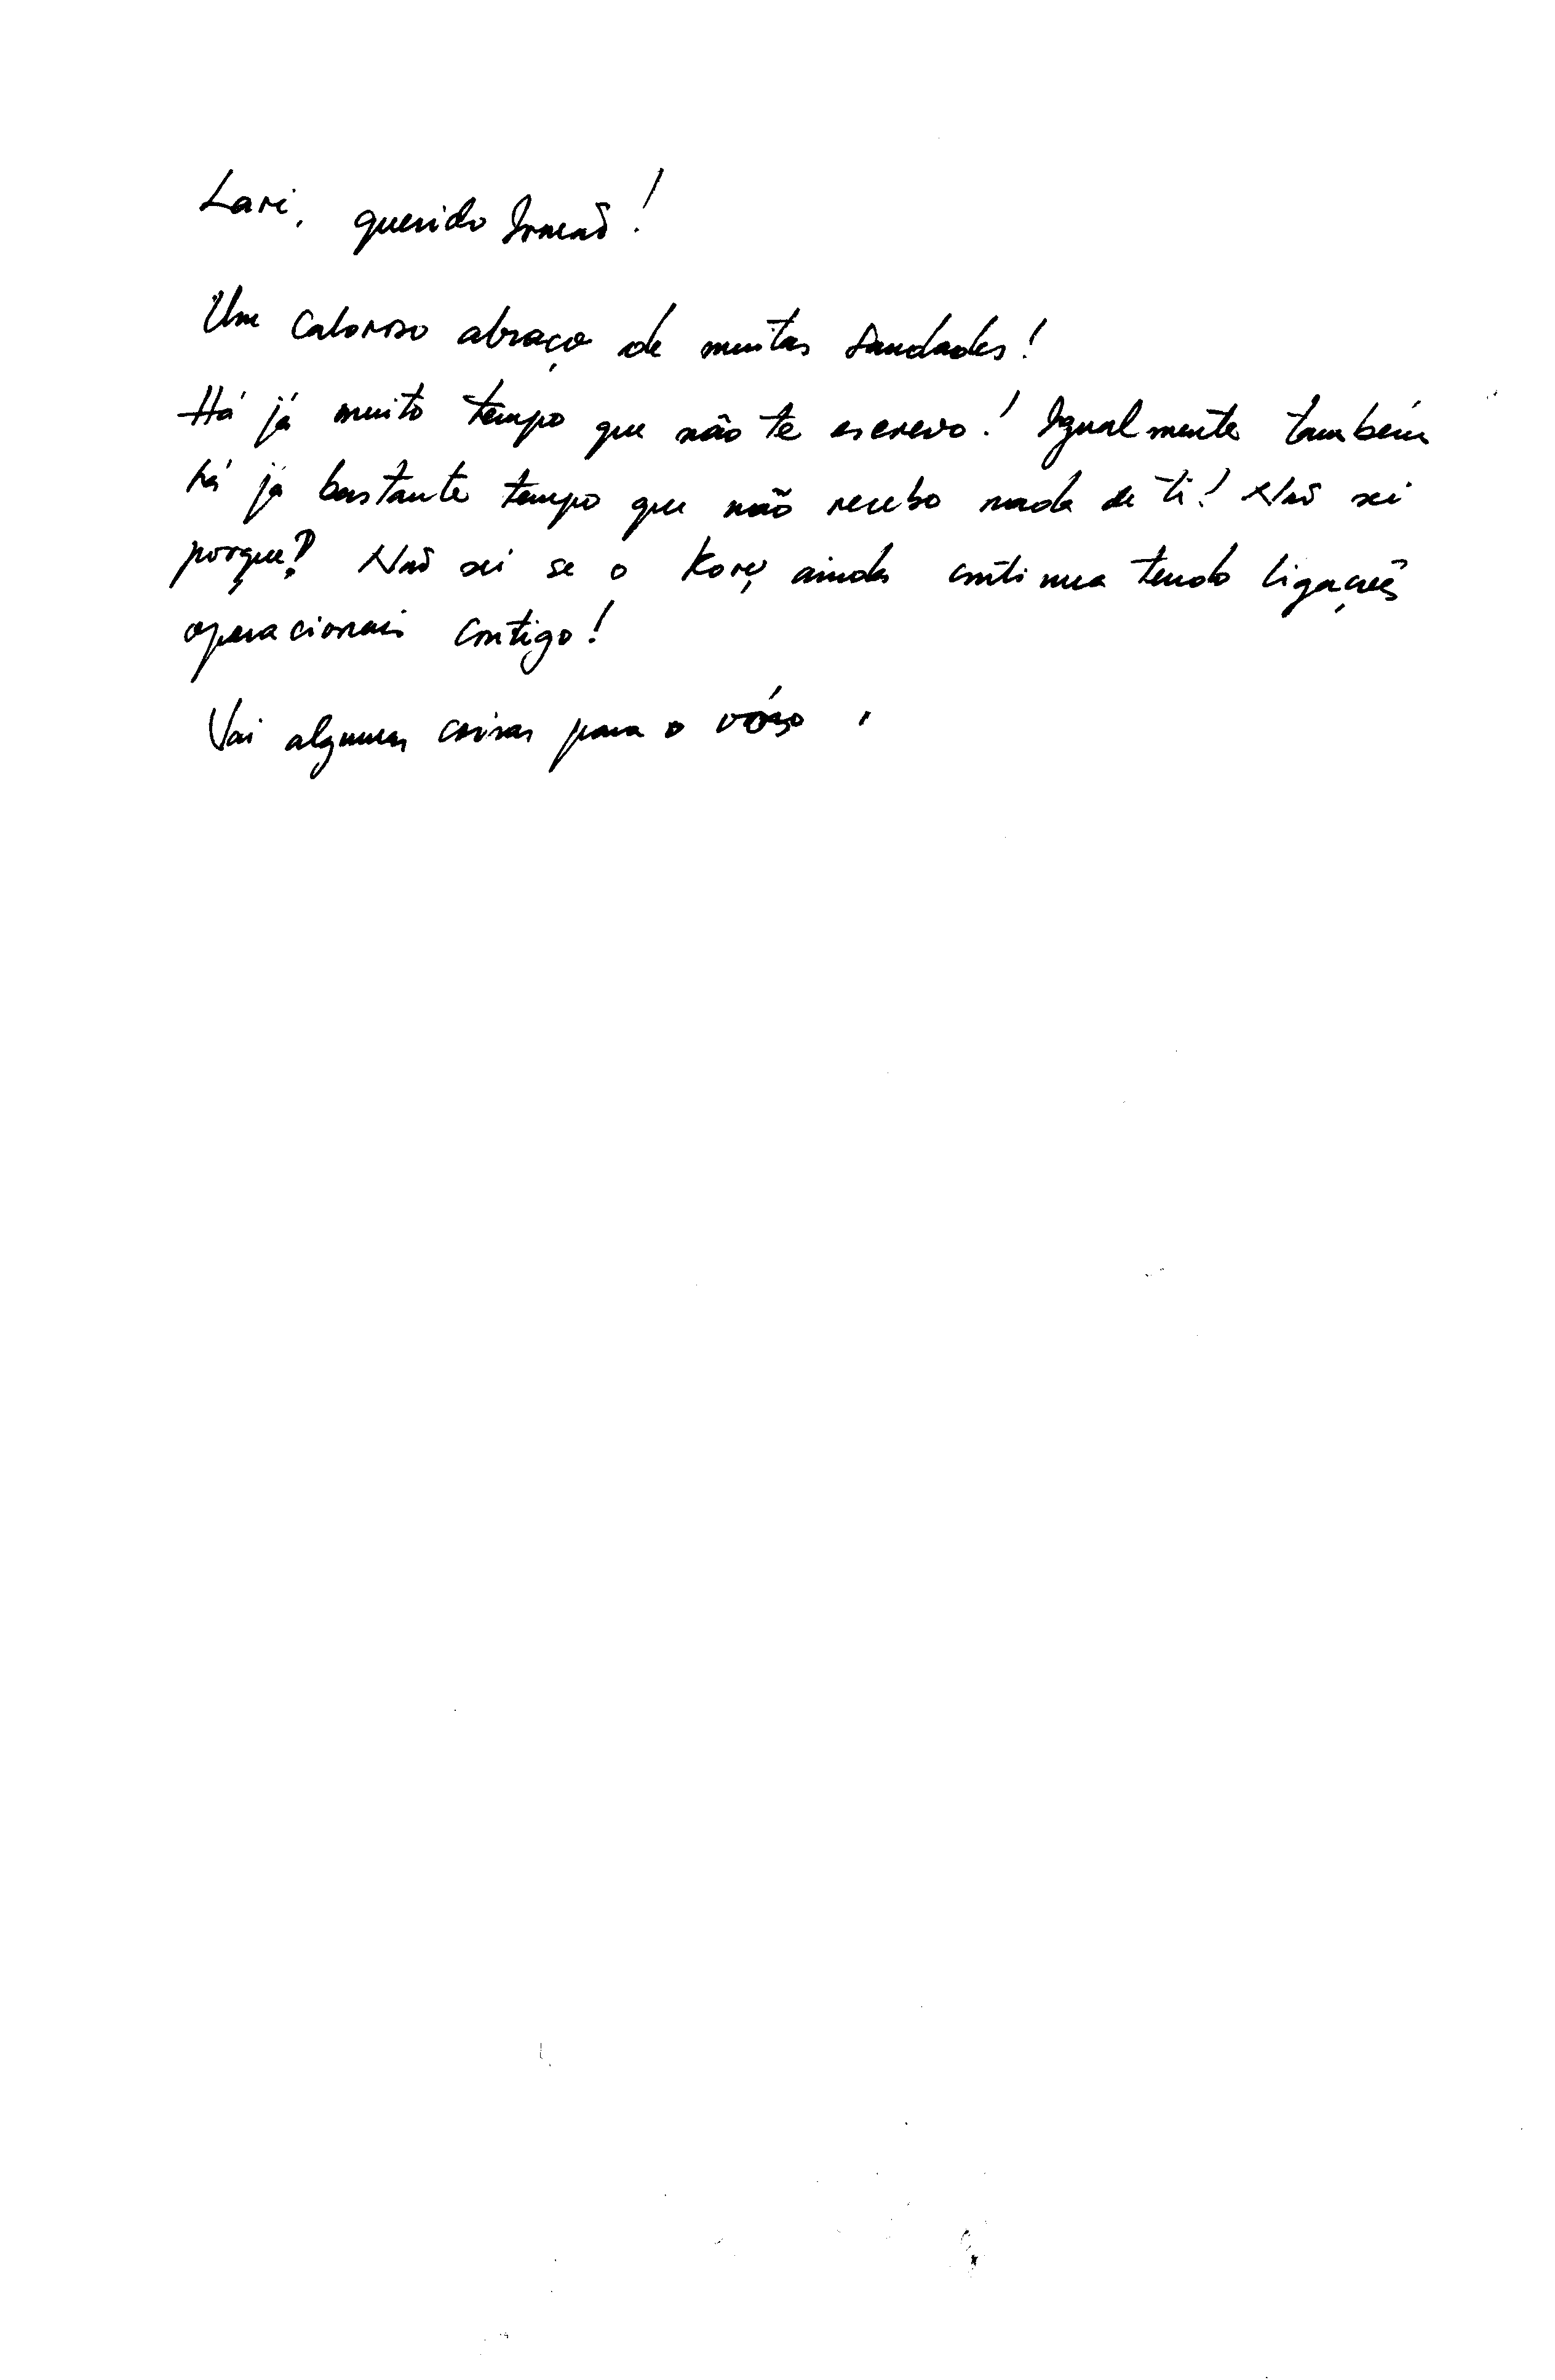 Lari, querido Irmaõ!
Um caloroso abraço de muitas saudades!
Há já muito tempo que não te escrevo! Igualmente também
há já bastante tempo que não recebo nada de ti! Naõ sei
porque? Naõ sei se o ainda continua tendo ligaçoẽs
operacionais contigo!
Vai algumas coisas para o vósso